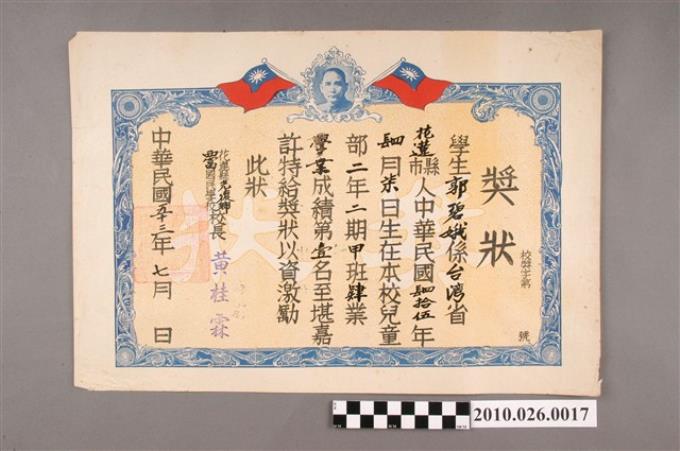 獎狀
校獎字第 號
學生郭碧娥係台灣省
花蓮縣市人中華民國肆拾伍年
肆月柒日生在本校兒童
部二年二期甲班肄業
學業成績第壹名至堪嘉
許特給獎狀以資激勵
此狀
花蓮縣光復鄉
國民學校校長 黃桂霖
中華民國五十三年七月 日
獎狀
2010.026.0017